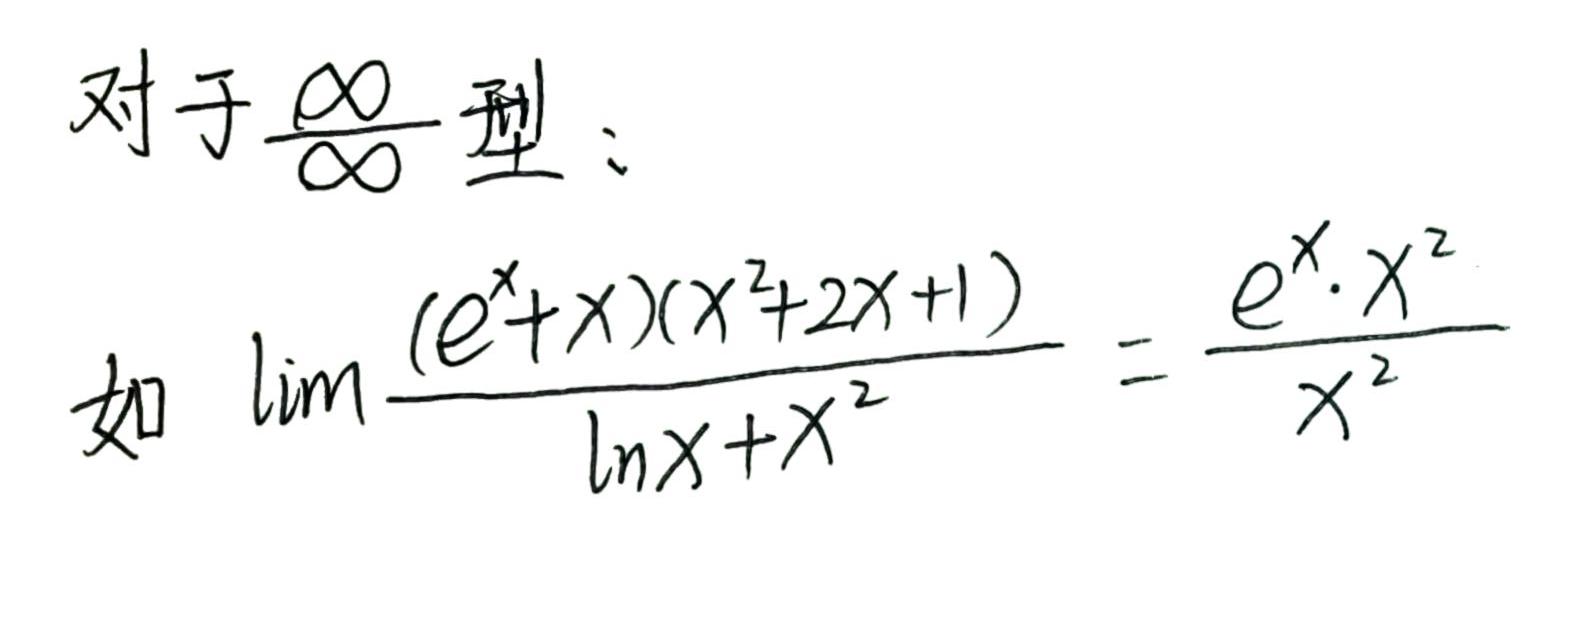 对于 ∞/∞ 型：
如 lim (e^x+x)(x^2+2x+1) / (lnx+x^2) = e^x·x^2 / x^2